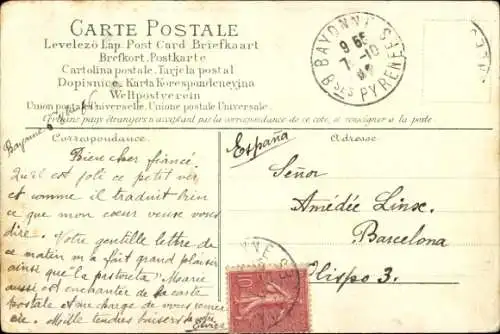 CARTE POSTALE
Levelező Lap. Post Card Briefkaart
Brefkort. Postkarte
Cartolina postale. Tarjeta postal
Dopisnice. Karta Korespondencyina
Weltpostverein
Union postale universelle. Unione postale Universale.
Certains pays étrangers n'acceptent pas la correspondance de ce côté, se renseigner à la poste
BAYONNE
9 55
7 - 10
BSES PYRENEES
Bayonne
Correspondance.
Adresse
España
Bien cher fiancé.
Qu'il est joli ce petit ver
et comme il traduit bien
ce que mon cœur veuse vous
dire. Votre gentille lettre de
ce matin m'a fait grand plaisir
ainsi que "la pastoreta" Marie
aussi est enchantée de la carte
postale et me charge de vous remer
cie. Mille tendres baisers
Señor
Amédée Linse.
Barcelona
Olispo 3.
10